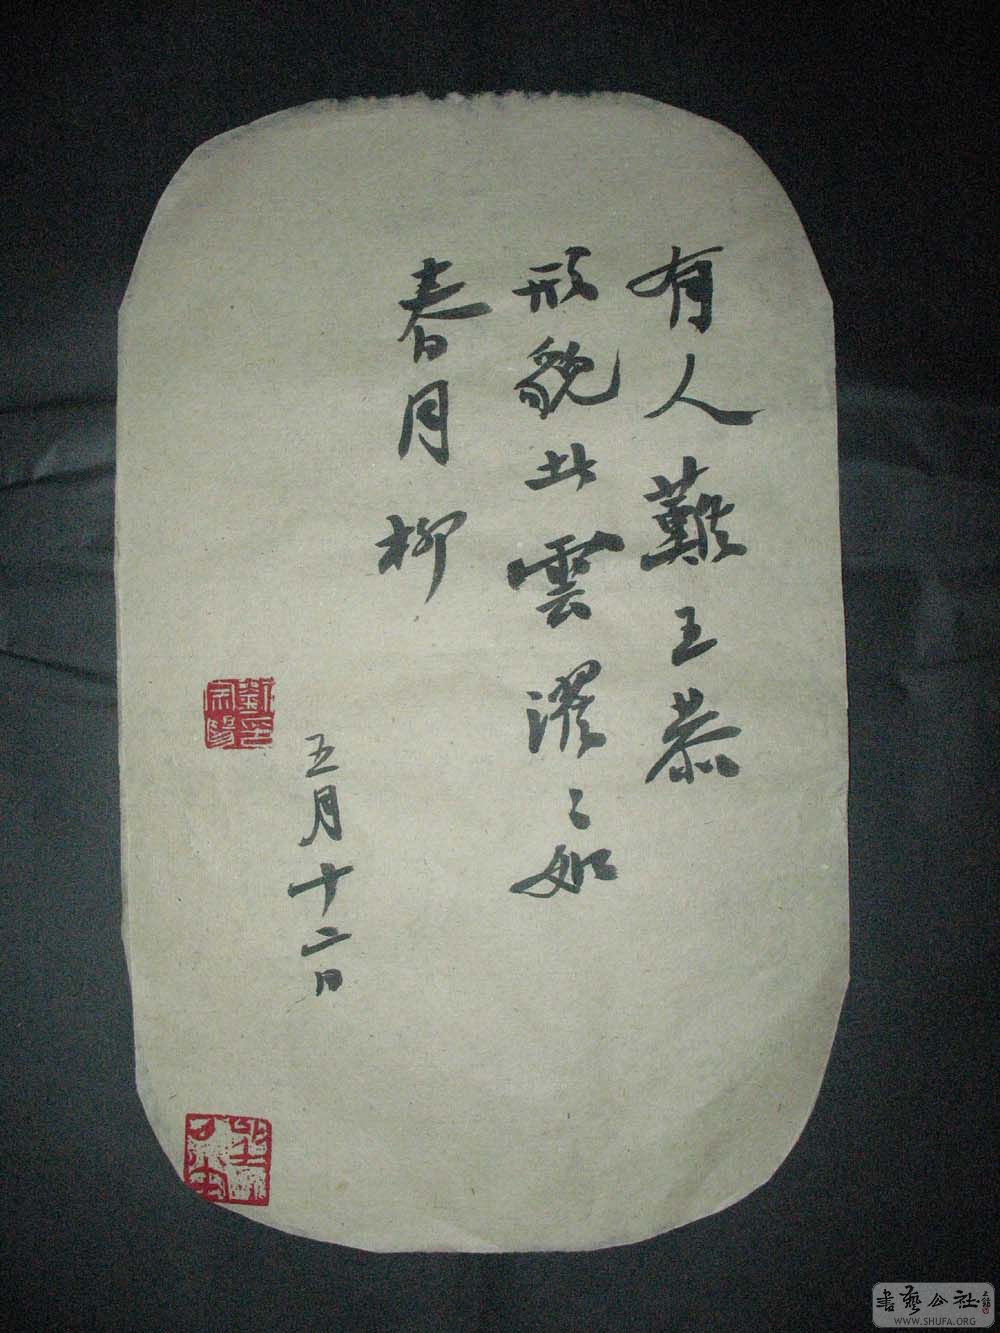 有人難王恭
形貌此雲濯々如
春月柳
五月十二日
書藝公社
WWW.SHUFA.ORG